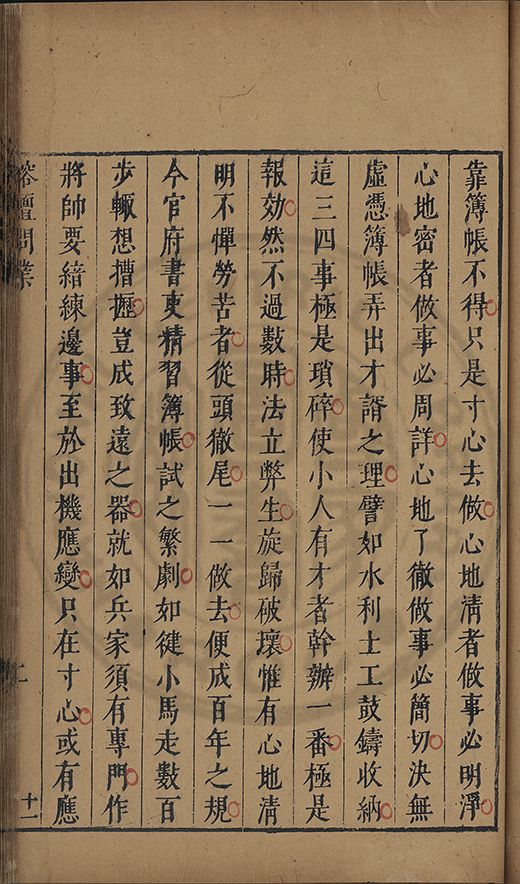 靠簿帳不得只是寸心去做心地清者做事必明淨
心地密者做事必周詳心地了徹做事必簡切決無
虛憑簿帳弄出才諝之理譬如水利土工鼓鑄收納
這三四事極是瑣碎使小人有才者幹辦一番極是
報効然不過數時法立弊生旋歸破壞惟有心地清
明不憚勞苦者從頭徹尾一一做去便成百年之規
今官府書吏精習簿帳試之繁劇如健小馬走數百
步輙想槽櫪豈成致遠之器就如兵家須有專門作
將帥要諳練邊事至於出機應變只在寸心或有應
榕壇問業
十一